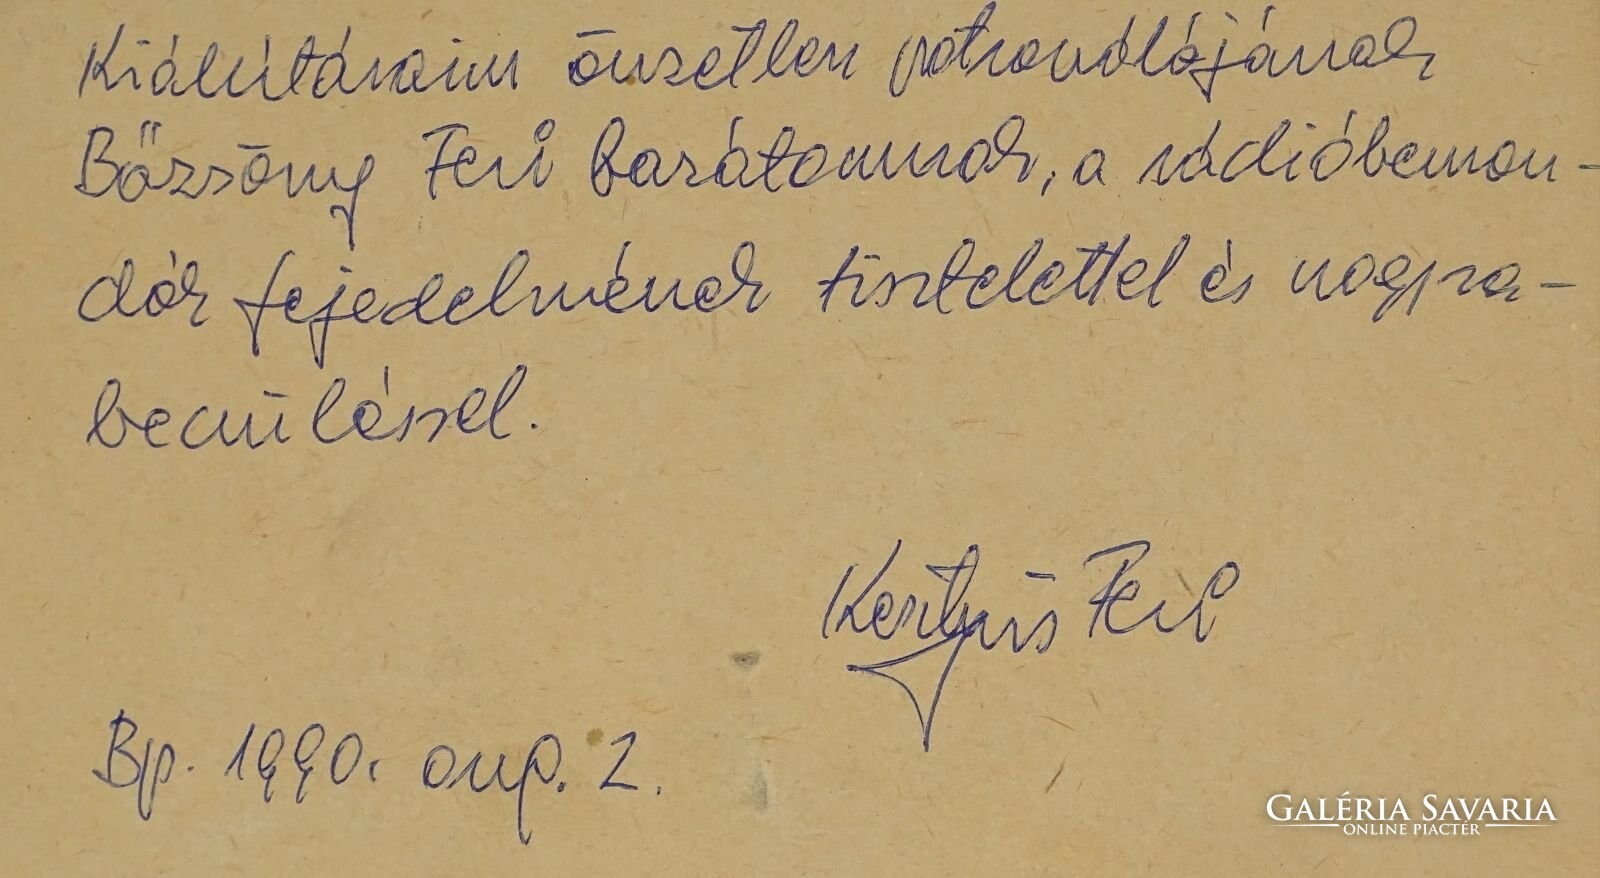 Kiállításaim önzetlen patronálójának
Bőzsöny Feri barátomnak, a rádióbemon-
dók fejedelmének tisztelettel és nagyra-
becsüléssel.
Kertyús Feri
Bp. 1990. aug. 2.
GALÉRIA SAVARIA
ONLINE PIACTÉR